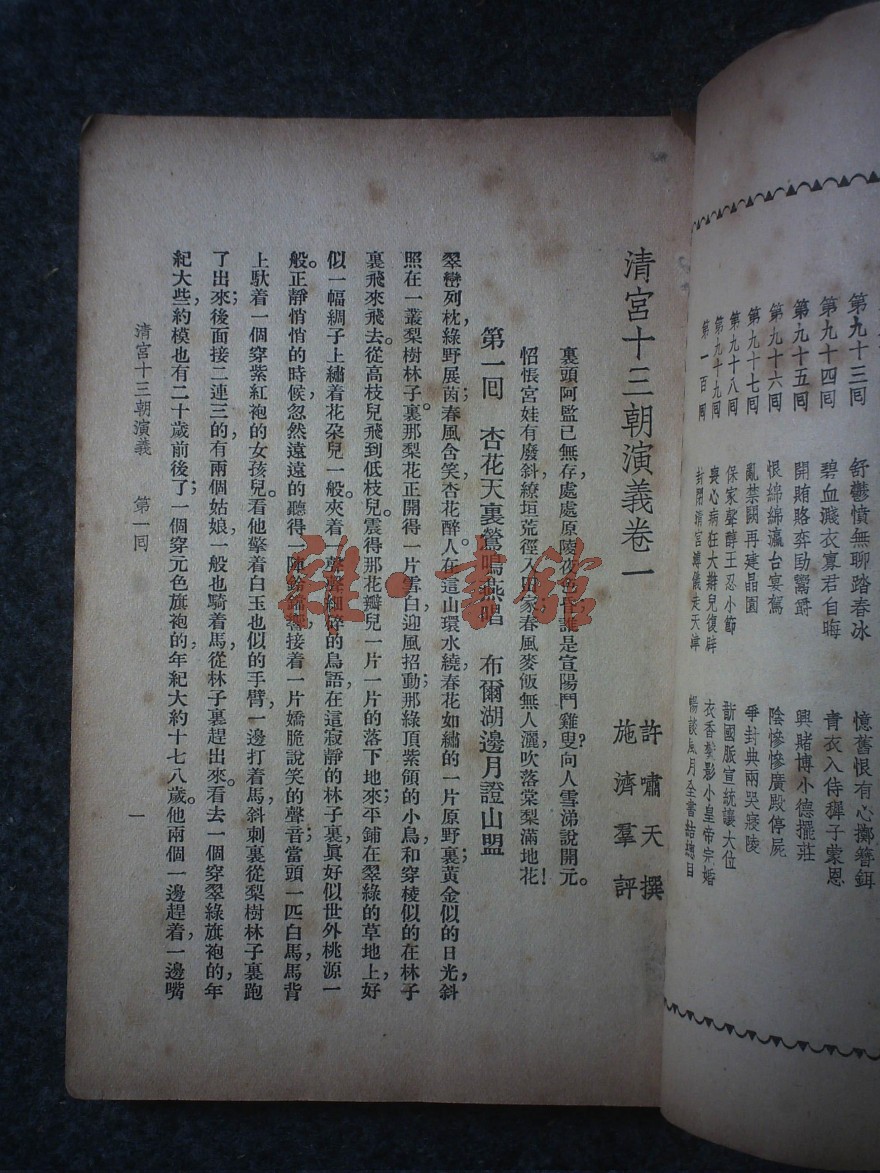 第九十三囘 舒鬱憤無聊踏春冰 憶舊恨有心擲簪鉺
第九十四囘 碧血濺衣寡君自晦 青衣入侍子蒙恩
第九十五囘 開賄賂奕劻鬻爵 興賭博小德擺莊
第九十六囘 恨綿綿瀛台宴駕 陰慘慘廣殿停屍
第九十七囘 亂禁闕再建晶園 爭封典兩哭寢陵
第九十八囘 保家聲醇王忍小節 斷國脈宣統讓大位
第九十九囘 喪心病狂大辮兒復辟 衣香鬢影小皇帝宗婚
第一百囘 封閉清宮溥儀走天津 暢談風月全書結總目
清宮十三朝演義卷一
許嘯天撰
施濟羣評
裏頭阿監已無存,處處原陵夜色誰是宣陽門雞叟?向人雪涕說開元。
怊悵宮娃有廢斜,繚垣荒徑入田家,春風麥飯無人灑,吹落棠梨滿地花!
第一囘 杏花天裏鶯鳴燕唱 布爾湖邊月證山盟
翠巒列枕,綠野展茵;春風含笑,杏花醉人。在這山環水繞,春花如繡的一片原野裏,黃金似的日光,斜
照在一叢梨樹林子裏。那梨花正開得一片雪白,迎風招動;那綠頂紫領的小鳥,和穿棱似的在林子
裏飛來飛去。從高枝兒飛到低枝兒。震得那花瓣兒一片一片的落下地來,平鋪在翠綠的草地上,好
似一幅綢子上繡着花朶兒一般。夾着一聲聲細碎的鳥語,在這寂靜的林子裏,眞好似世外桃源一
般。正靜悄悄的時候,忽然遠遠的聽得一陣鈴鐺響,接着一片嬌脆說笑的聲音;當頭一匹白馬,馬背
上馱着一個穿紫紅袍的女孩兒。看他擎着白玉也似的手臂,一邊打着馬,斜刺裏從梨樹林子裏跑
了出來;後面接二連三的,有兩個姑娘,一般也騎着馬,從林子裏趕出來。看去一個穿翠綠旗袍的,年
紀大些,約模也有二十歲前後了;一個穿元色旗袍的,年紀大約十七八歲。他兩個一邊趕着,一邊嘴
清宮十三朝演義 第一囘 一
雜·書館